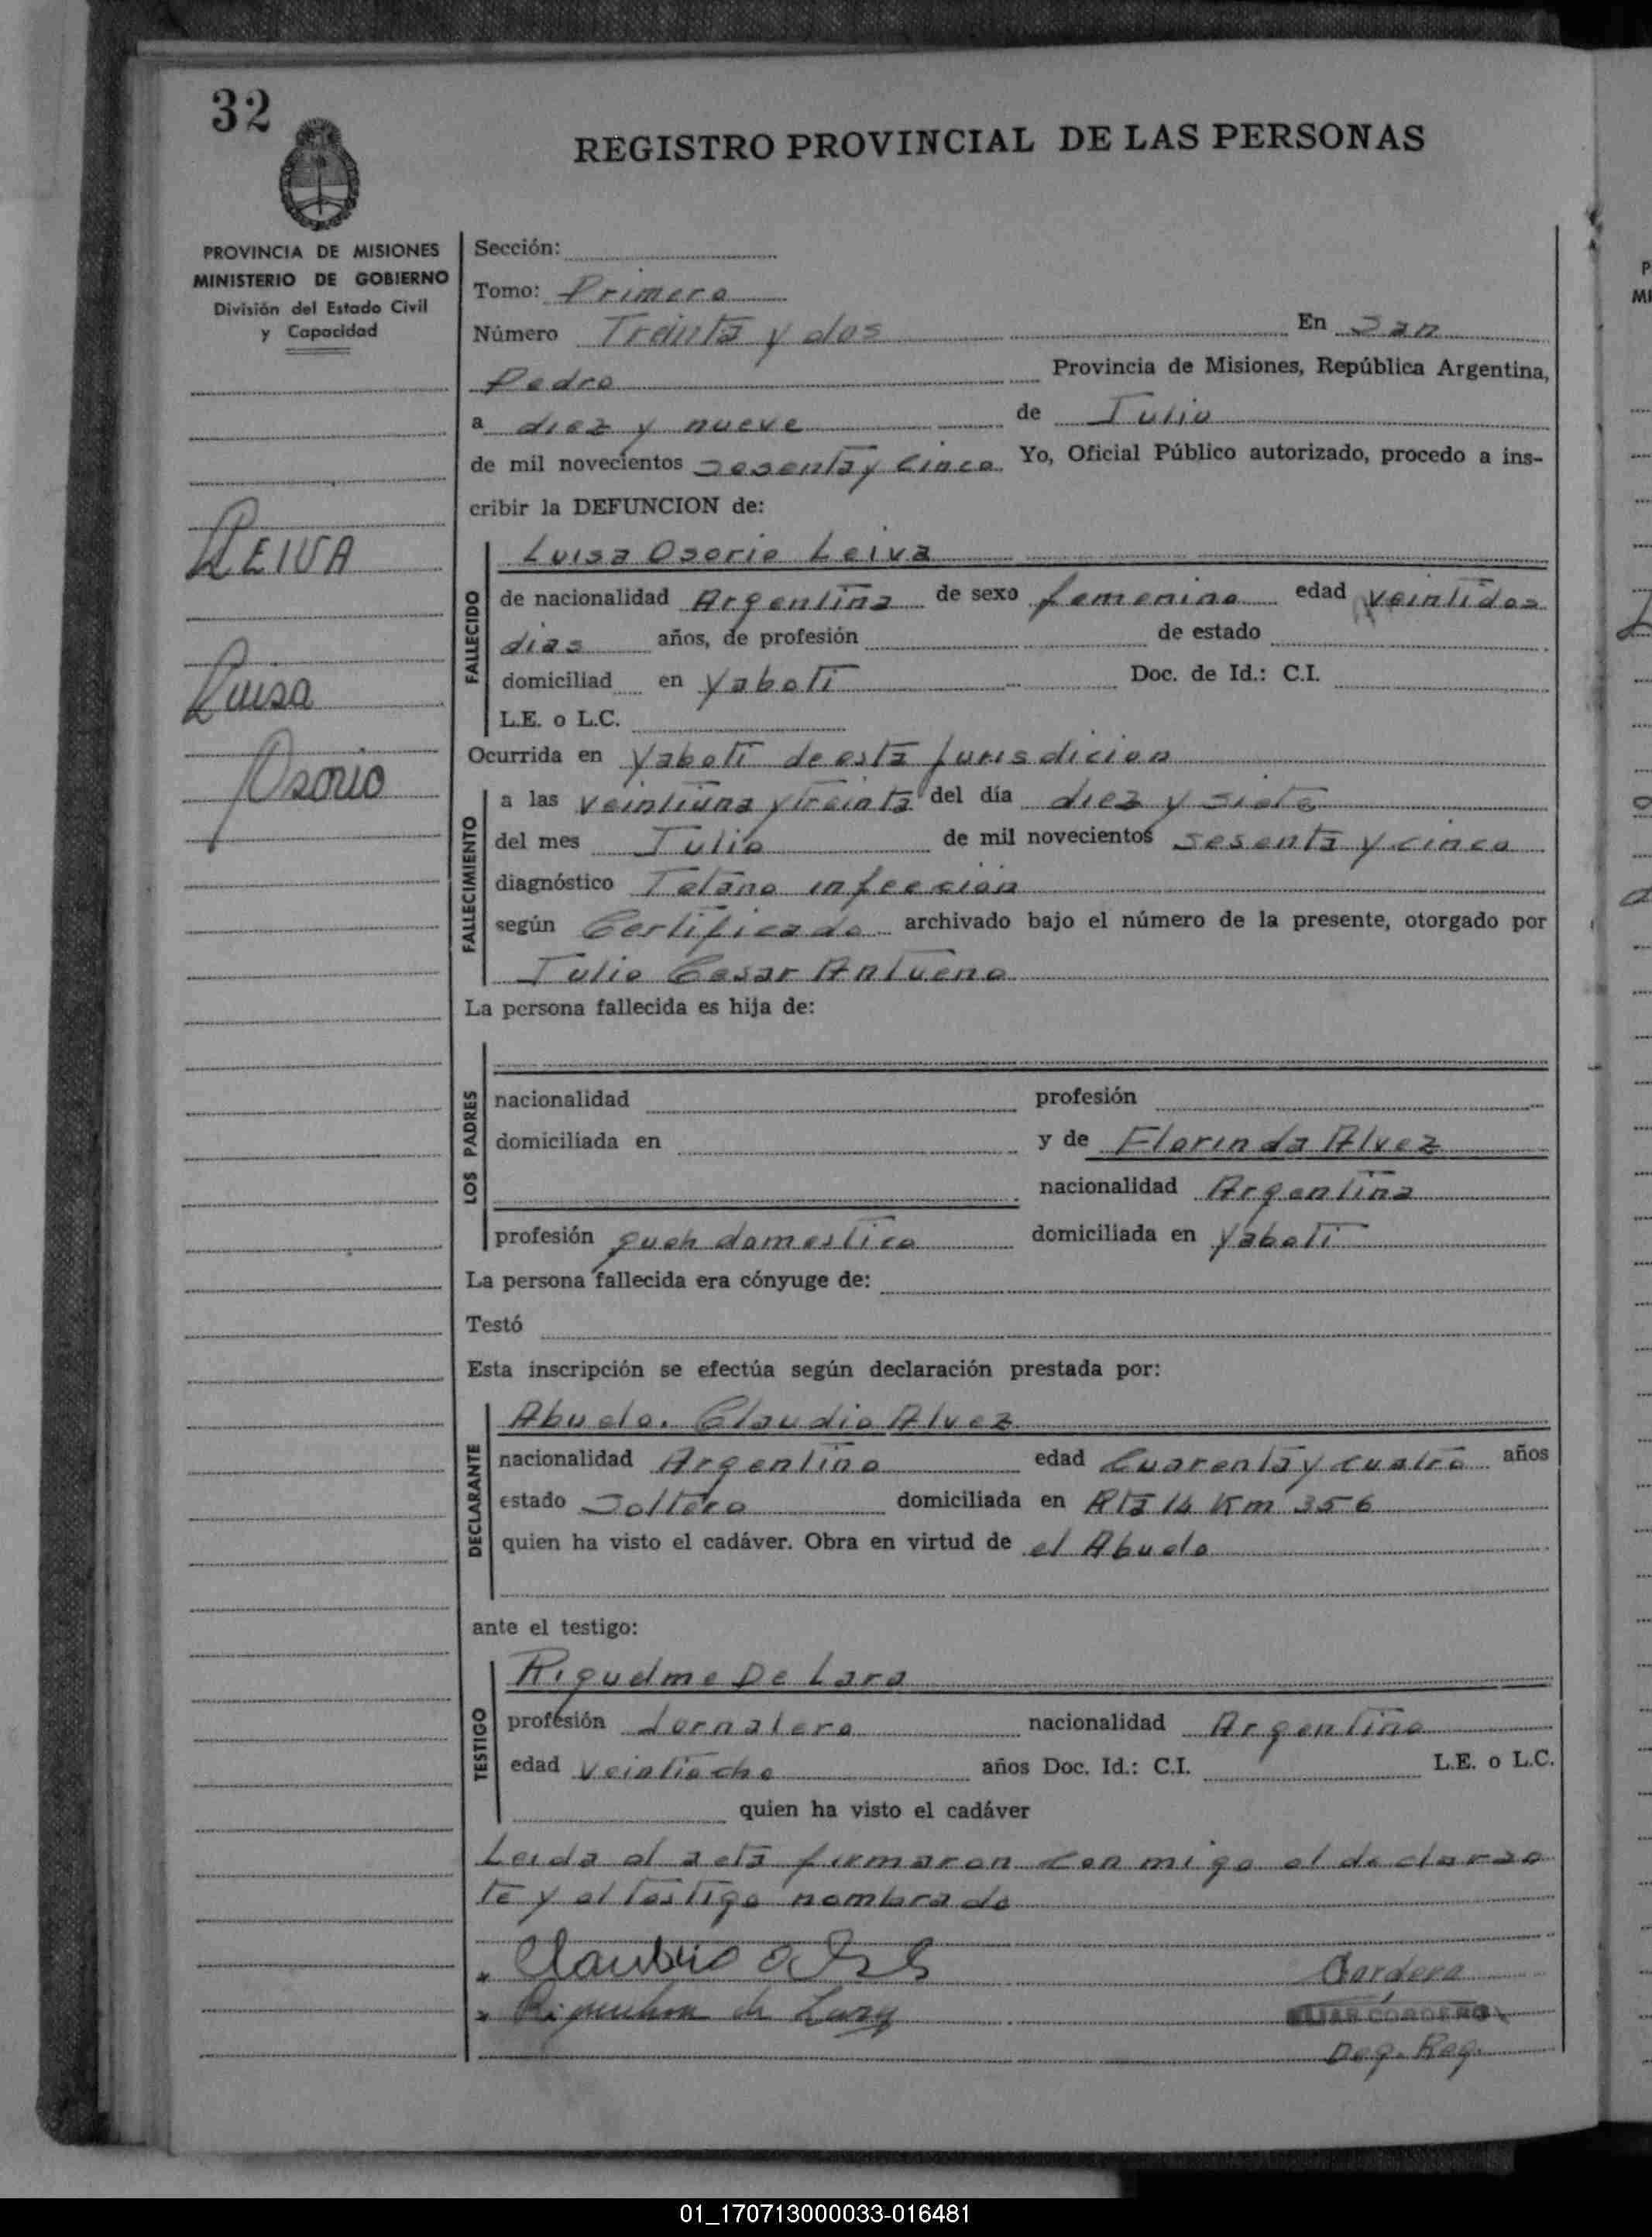 32
REGISTRO PROVINCIAL DE LAS PERSONAS
PROVINCIA DE MISIONES
MINISTERIO DE GOBIERNO
División del Estado Civil
y Capacidad
LEIVA
Luisa
Osorio
Sección:
Tomo: Primero
Número Treinta y dos En San
Pedro Provincia de Misiones, República Argentina,
a diez y nueve de Julio
de mil novecientos sesenta y cinco Yo, Oficial Público autorizado, procedo a ins-
cribir la DEFUNCION de:
FALLECIDO
Luisa Osorio Leiva
de nacionalidad Argentina de sexo femenino edad veintidos
dias años, de profesión de estado
domiciliad en Yaboti Doc. de Id.: C.I.
L.E. o L.C.
Ocurrida en Yaboti de esta jurisdicion
FALLECIMIENTO
a las veintiuna y treinta del día diez y siete
del mes Julio de mil novecientos sesenta y cinco
diagnóstico Tetano infeccion
según Certificado archivado bajo el número de la presente, otorgado por
Julio Cesar Antueno
La persona fallecida es hija de:
LOS PADRES
nacionalidad profesión
domiciliada en y de Florinda Alvez
nacionalidad Argentina
profesión domestico domiciliada en Yaboti
La persona fallecida era cónyuge de:
Testó
Esta inscripción se efectúa según declaración prestada por:
DECLARANTE
Abuelo. Claudio Alvez
nacionalidad Argentino edad Cuarenta y cuatro años
estado Soltero domiciliada en Rta 14 Km 356
quien ha visto el cadáver. Obra en virtud de el Abuelo
ante el testigo:
TESTIGO
Riquelme De Lara
profesión Jornalero nacionalidad Argentino
edad veintiocho años Doc. Id.: C.I. L.E. o L.C.
quien ha visto el cadáver
Leida el acta firmaron con migo el declaran
te y el testigo nombrado
Claudio
Cordero
de Lara
CORDERO
Reg.
01_170713000033-016481